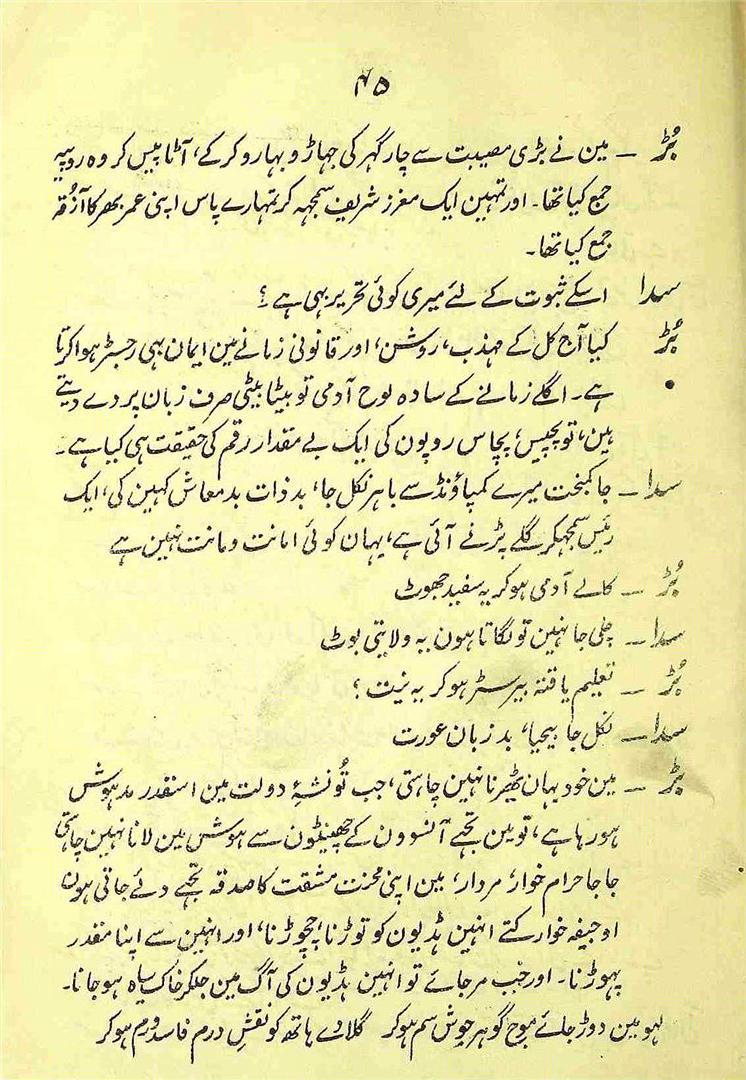 ۴۵
بُڑ ـ مین نے بڑی مصیبت سے چار گہر کی جہاڑو بہارو کر کے، آٹا پیس کر وہ روپیہ
جمع کیا تھا۔ اور تمہین ایک معزز شریف سمجہہ کر تمہارے پاس اپنی عمر بھر کا آزُقہ
جمع کیا تھا۔
سدا اسکے ثبوت کے لئے میری کوئی تحریر بہی ہے؟
بُڑ کیا آج کل کے مہذب، روشن، اور قانونی زمانے مین ایمان بہی رجسٹر ہوا کرتا
ہے۔ اگلے زمانے کے سادہ لوح آدمی تو بیٹا بیٹی صرف زبان پر دے دیتے
ہین، تو پچیس، پچاس روپون کی ایک بے مقدار رقم کی حقیقت ہی کیا ہے۔
سدا ـ جا کمبخت میرے کمپاؤنڈ سے باہر نکل جا، بدذات بدمعاش کہین کی، ایک
رئیس سمجہکر گلے پڑنے آئی ہے، یہان کوئی امانت ومانت نہین ہے
بُڑ ـ کالے آدمی ہوکر یہ سفید جھوٹ
سدا ـ چلی جا نہین تو لگاتا ہون یہ ولایتی بوٹ
بُڑ ـ تعلیم یافتہ بیرسٹر ہوکر یہ نیت؛
سدا ـ نکل جا بیحیا، بدزبان عورت
بُڑ ـ مین خود یہان ٹھیرنا نہین چاہتی، جب تُو نشۂ دولت مین اسقدر مدہوش
ہو رہا ہے، تو مین تجہے آنسوون کے چھینٹون سے ہوش مین لانا نہین چاہتی
جا جا حرام خوار، مردار، مین اپنی محنت مشقت کا صدقہ تجہے دئے جاتی ہون
او جیفہ خوار کتے انہین ہڈیون کو توڑنا، چچوڑنا، اور انہین سے اپنا مقدر
پہوڑنا۔ اور جب مر جائے تو انہین ہڈیون کی آگ مین جلکر خاک سیاہ ہو جانا۔
لہو مین دوڑ جائے موج گوہر جوش سم ہوکر گلا دے ہاتھ کو نقشِ درم فاسد ورم ہوکر